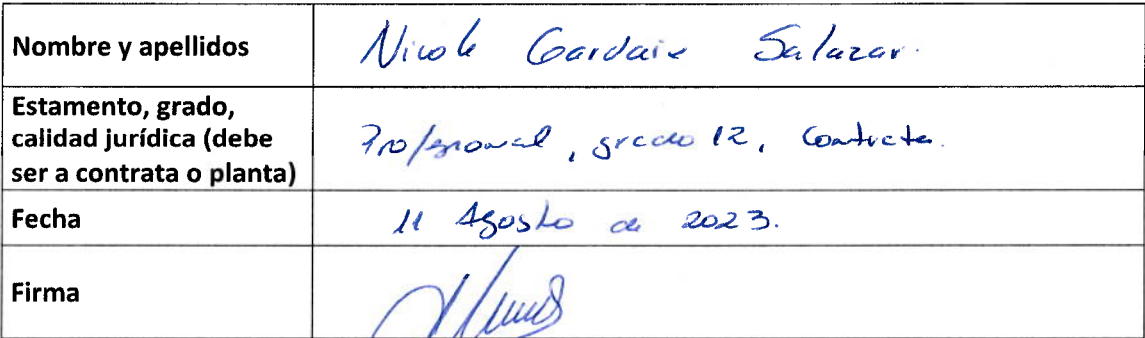 Nombre y apellidos
Nicole Gardaix Salazar.
Estamento, grado,
calidad jurídica (debe
ser a contrata o planta)
Profesional, grado 12, Contrata.
Fecha
11 Agosto de 2023.
Firma